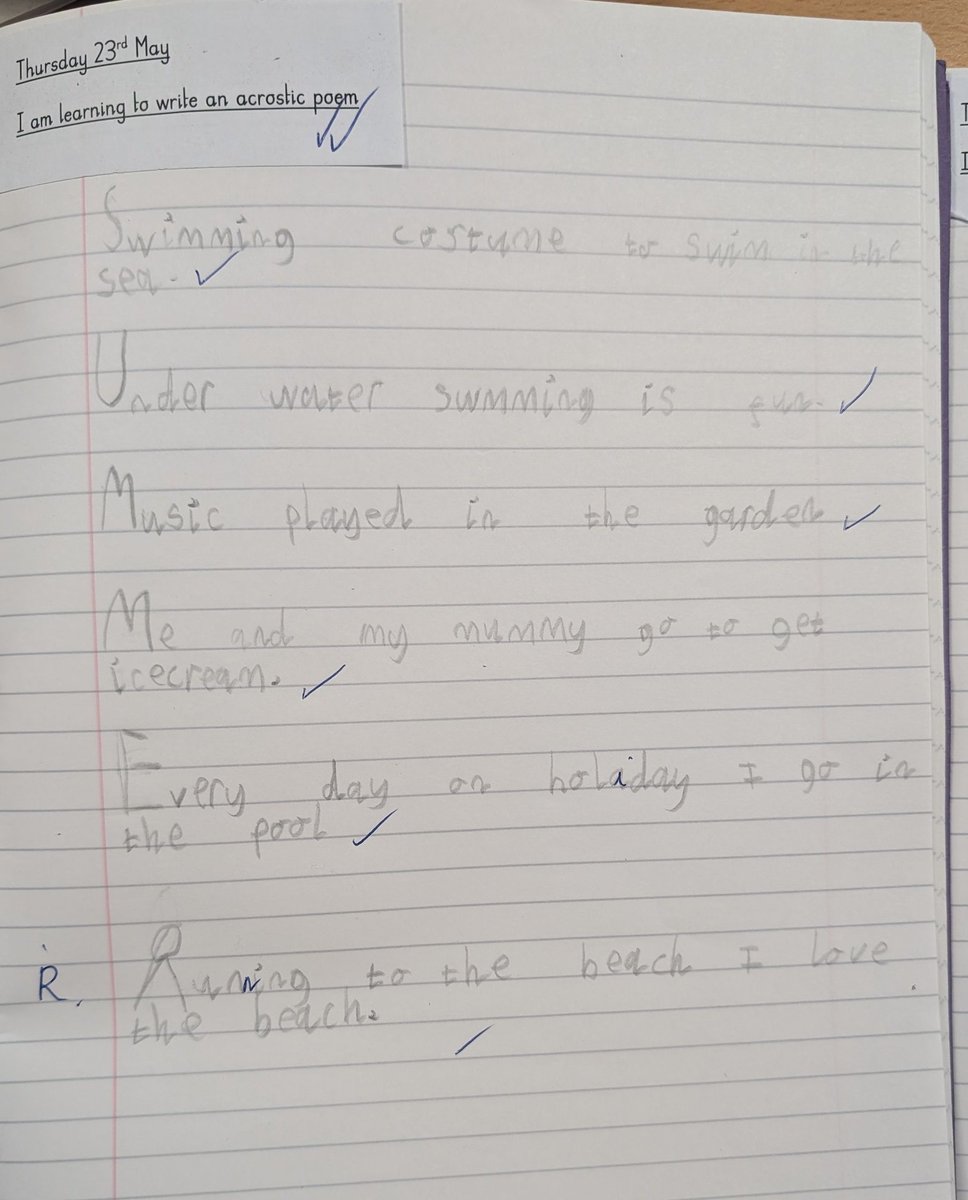 Thursday 23rd May
I am learning to write an acrostic poem
Swimming costume to swim in the
sea.
Under water swmming is fun.
Music played in the garden
Me and my mummy go to get
icecream.
Every day on holiday I go in
the pool
R. Runing to the beach I love
the beach.